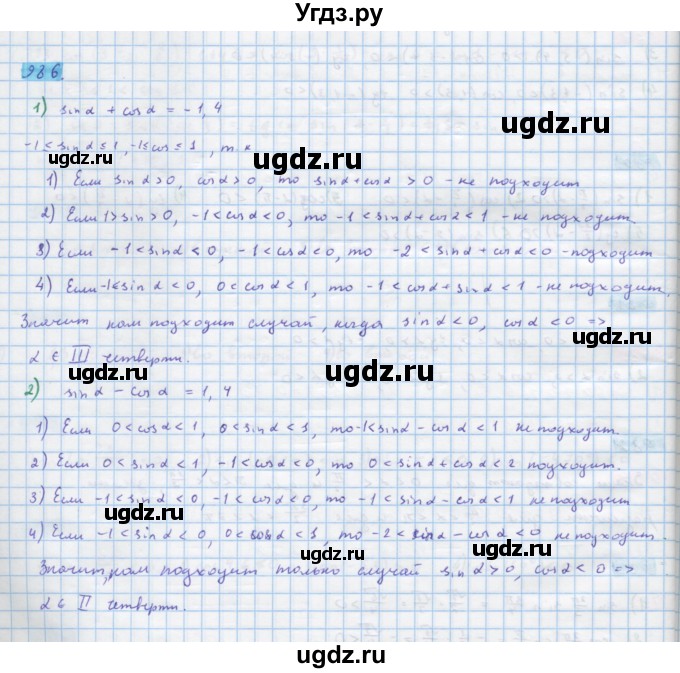 Угдз.ру
986.
1) sin α + cos α = -1,4
-1 ≤ sin α ≤ 1, -1 ≤ cos ≤ 1, т.к
ugdz.ru ugdz.ru ugdz.ru
1) Если sin α > 0, cos α > 0, то sin α + cos α > 0 - не подходит
2) Если 1 > sin > 0, -1 < cos α < 0, то -1 < sin α + cos α < 1 - не подходит.
ugdz.ru ugdz.ru
3) Если -1 < sin α < 0, -1 < cos α < 0, то -2 < sin α + cos α < 0 - подходит
ugdz.ru ugdz.ru
4) Если -1 < sin α < 0, 0 < cos α < 1, то -1 < cos α + sin α < 1 - не подходит.
Значит нам подходит случай, когда sin α < 0, cos α < 0 =>
ugdz.ru
α ∈ III четверти.
ugdz.ru ugdz.ru
2) sin α - cos α = 1,4
1) Если 0 < cos α < 1, 0 < sin α < 1, то -1 < sin α - cos α < 1 не подходит.
ugdz.ru ugdz.ru
2) Если 0 < sin α < 1, -1 < cos α < 0, то 0 < sin α + cos α < 2 подходит.
3) Если -1 < sin α < 0, -1 < cos α < 0, то -1 < sin α - cos α < 1 не подходит
ugdz.ru ugdz.ru
4) Если -1 < sin α < 0, 0 < cos α < 1, то -2 < sin α - cos α < 0 не подходит.
ugdz.ru
Значит, нам подходит только случай sin α > 0, cos α < 0 =>
ugdz.ru ugdz.ru
α ∈ II четверти.
ugdz.ru
ugdz.ru